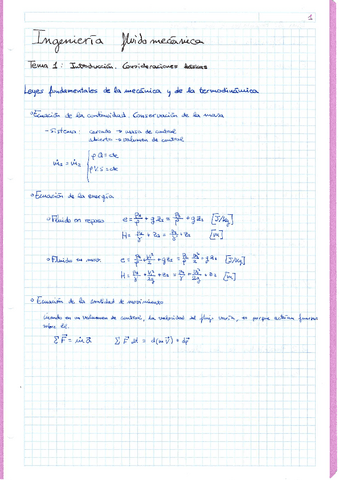 1
Ingeniería fluidomecánica
Tema 1: Introducción. Consideraciones básicas
Leyes fundamentales de la mecánica y de la termodinámica
Ecuación de la continuidad. Conservación de la masa
- Sistema: cerrado → masa de control
abierto → volumen de control
ṁ₁ = ṁ₂ { ρQ = cte
ρV·S = cte
Ecuación de la energía
Fluido en reposo e = P₁/ρ + gz₁ = P₂/ρ + gz₂ [J/kg]
H = P₁/γ + z₁ = P₂/γ + z₂ [m]
Fluido en mov. e = P₁/ρ + V₁²/2 + gz₁ = P₂/ρ + V₂²/2 + gz₂ [J/kg]
H = P₁/γ + V₁²/2g + z₁ = P₂/γ + V₂²/2g + z₂ [m]
Ecuación de la cantidad de movimiento
Cuando en un volumen de control, la velocidad del flujo varía, es porque actúan fuerzas
sobre él.